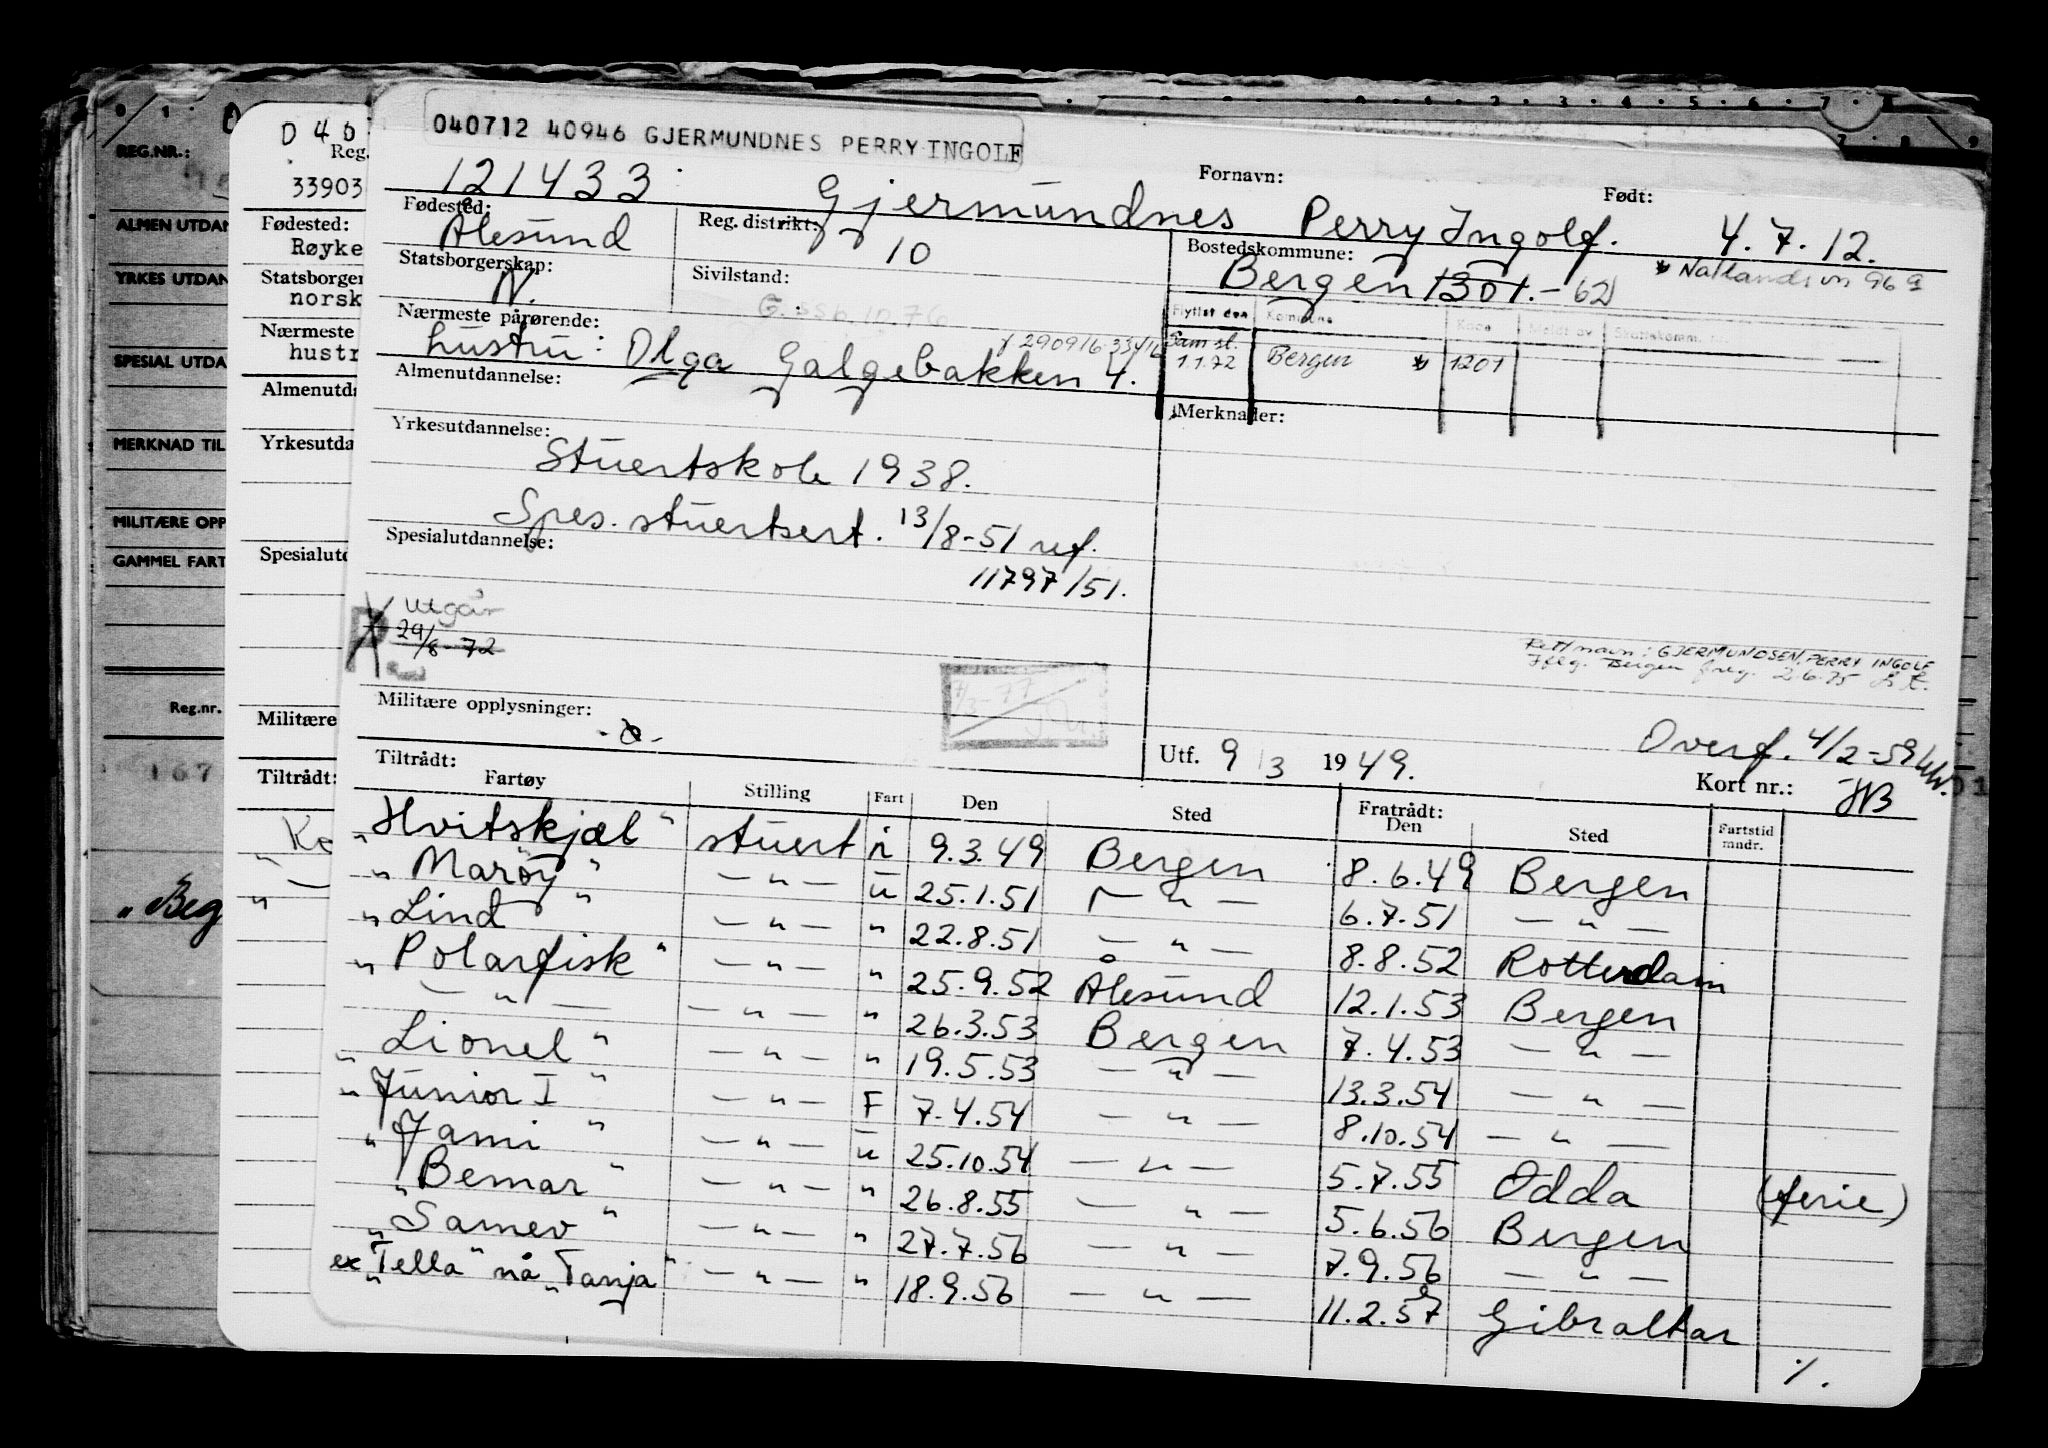 040712 40946 GJERMUNDNES PERRY INGOLF
121433 Gjermundnes Fornavn: Perry Ingolf. Født: 4.7.12.
Fødested: Ålesund
Reg. distrikt: 10
Bostedskommune: Bergen 1301.-62
Statsborgerskap: N.
Sivilstand:
Nærmeste pårørende:
hustru: Olga Galgebakken 4.
Flyttet den Kommune Kode Meldt av Skattekomm.
Sam.sl. 1.1.72 Bergen 1201
Almenutdannelse:
Merknader:
Yrkesutdannelse:
Stuertskole 1938.
Spes. stuertsert. 13/8-51 ref.
11797/51.
Spesialutdannelse:
Utgår
29/8-72
Rett navn: GJERMUNDSEN, PERRY INGOLF
Iflg. Bergen freg. 2.6.75
Militære opplysninger:
Overf. 4/2-59
Utf. 9/3 1949.
Kort nr.:
HB
Tiltrådt: Fratrådt:
Fartøy Stilling Fart Den Sted Den Sted Fartstid mndr.
"Hvitskjæl" stuert i 9.3.49 Bergen 8.6.49 Bergen
"Marøy" — " — u 25.1.51 — " — 6.7.51 — " —
"Lind" — " — " 22.8.51 — " — 8.8.52 Rotterdam
"Polarfisk" — " — " 25.9.52 Ålesund 12.1.53 Bergen
— " — — " — " 26.3.53 Bergen 7.4.53 — " —
"Lionel" — " — " 19.5.53 — " — 13.3.54 — " —
"Junior I" — " — F 7.4.54 — " — 8.10.54 — " —
"Jami" — " — u 25.10.54 — " — 5.7.55 Odda (ferie)
"Bemar" — " — " 26.8.55 — " — 5.6.56 Bergen
"Samev" — " — " 27.7.56 — " — 7.9.56 — " —
ex "Tella" nå "Tanja" — " — " 18.9.56 — " — 11.2.57 Gibraltar
./.
Reg.
33903
Fødested:
Røyke
Statsborger
norsk
Nærmeste
hustr
Almenutda
Yrkesutda
Spesialutd
Militære
Tiltrådt:
REG.NR.:
ALMEN UTDAN
YRKES UTDAN
SPESIAL UTDA
MERKNAD TIL
MILITÆRE OPP
GAMMEL FART
Reg.nr.
167
"Beg